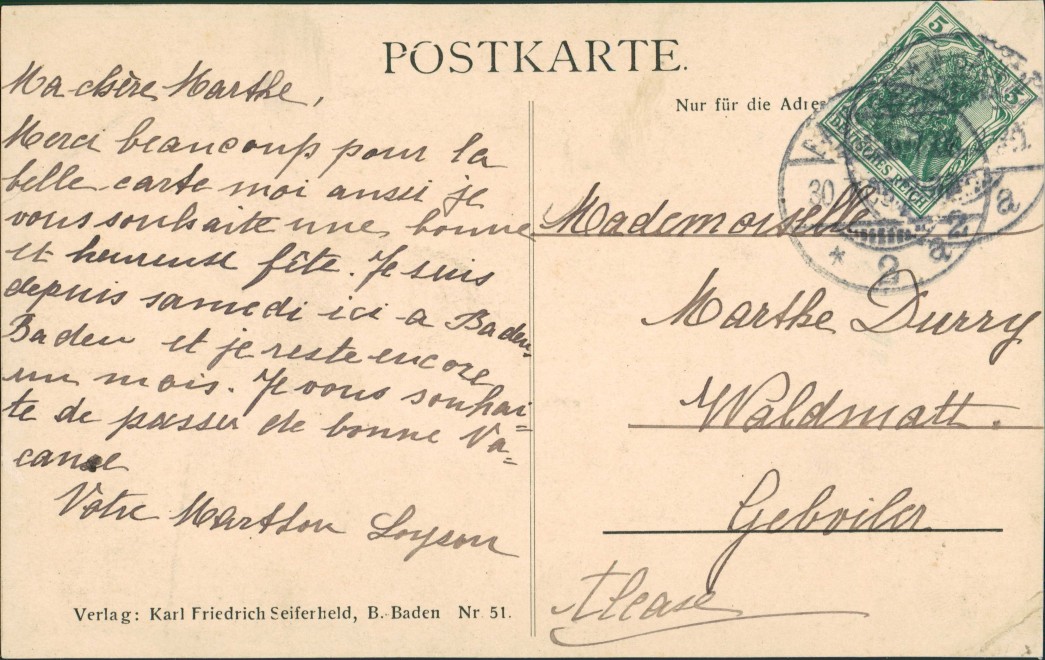 POSTKARTE.
Nur für die Adres
Ma chère Marthe,
Merci beaucoup pour la
belle carte moi aussi je
vous souhaite une bonne
et heureuse fête. Je suis
depuis samedi ici a Baden-
Baden et je reste encore
un mois. Je vous souhai-
te de passer de bonne Va=
canse
Votre Marthou Loyson
Mademoiselle
Marthe Durry
Waldmatt.
Gebviler
Alease
Verlag: Karl Friedrich Seiferheld, B.-Baden Nr. 51.
5
5
DEUTSCHES REICH
30
* 2 a
2 a